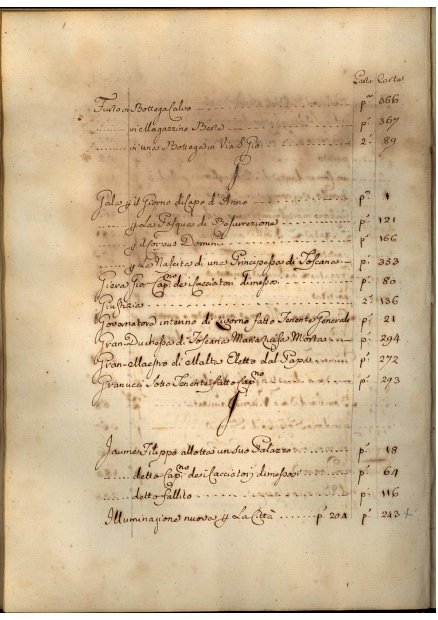 Parte Carta
Furto in Bottega Calvo pª 366
in Magazzino Berte pª 367
in una Bottega in Via S. Gio: 2ª 89
Gala p il Giorno di Capo d'Anno pª 1
p La Pasqua di Resurrezione pª 121
p il Corpus Domini pª 166
p La Nascita di una Principessa di Toscana pª 353
Giera Gio: Capno de Cacciatori dimesso pª 80
2ª 136
Governatore interino di Livorno fatto Tenente Generale pª 21
Gran Duchessa di Toscana Maria Luisa Morta pª 294
Gran-Maestro di Malta Eletto dal Papa pª 272
Granucci Sotto Tenente fatto Capno pª 293
Jaume Filippo allotta un suo Palazzo pª 18
detto Capno de Cacciatori dimesso pª 64
detto fallito pª 116
Illuminazione nuova p La Città pª 204 pª 243 +